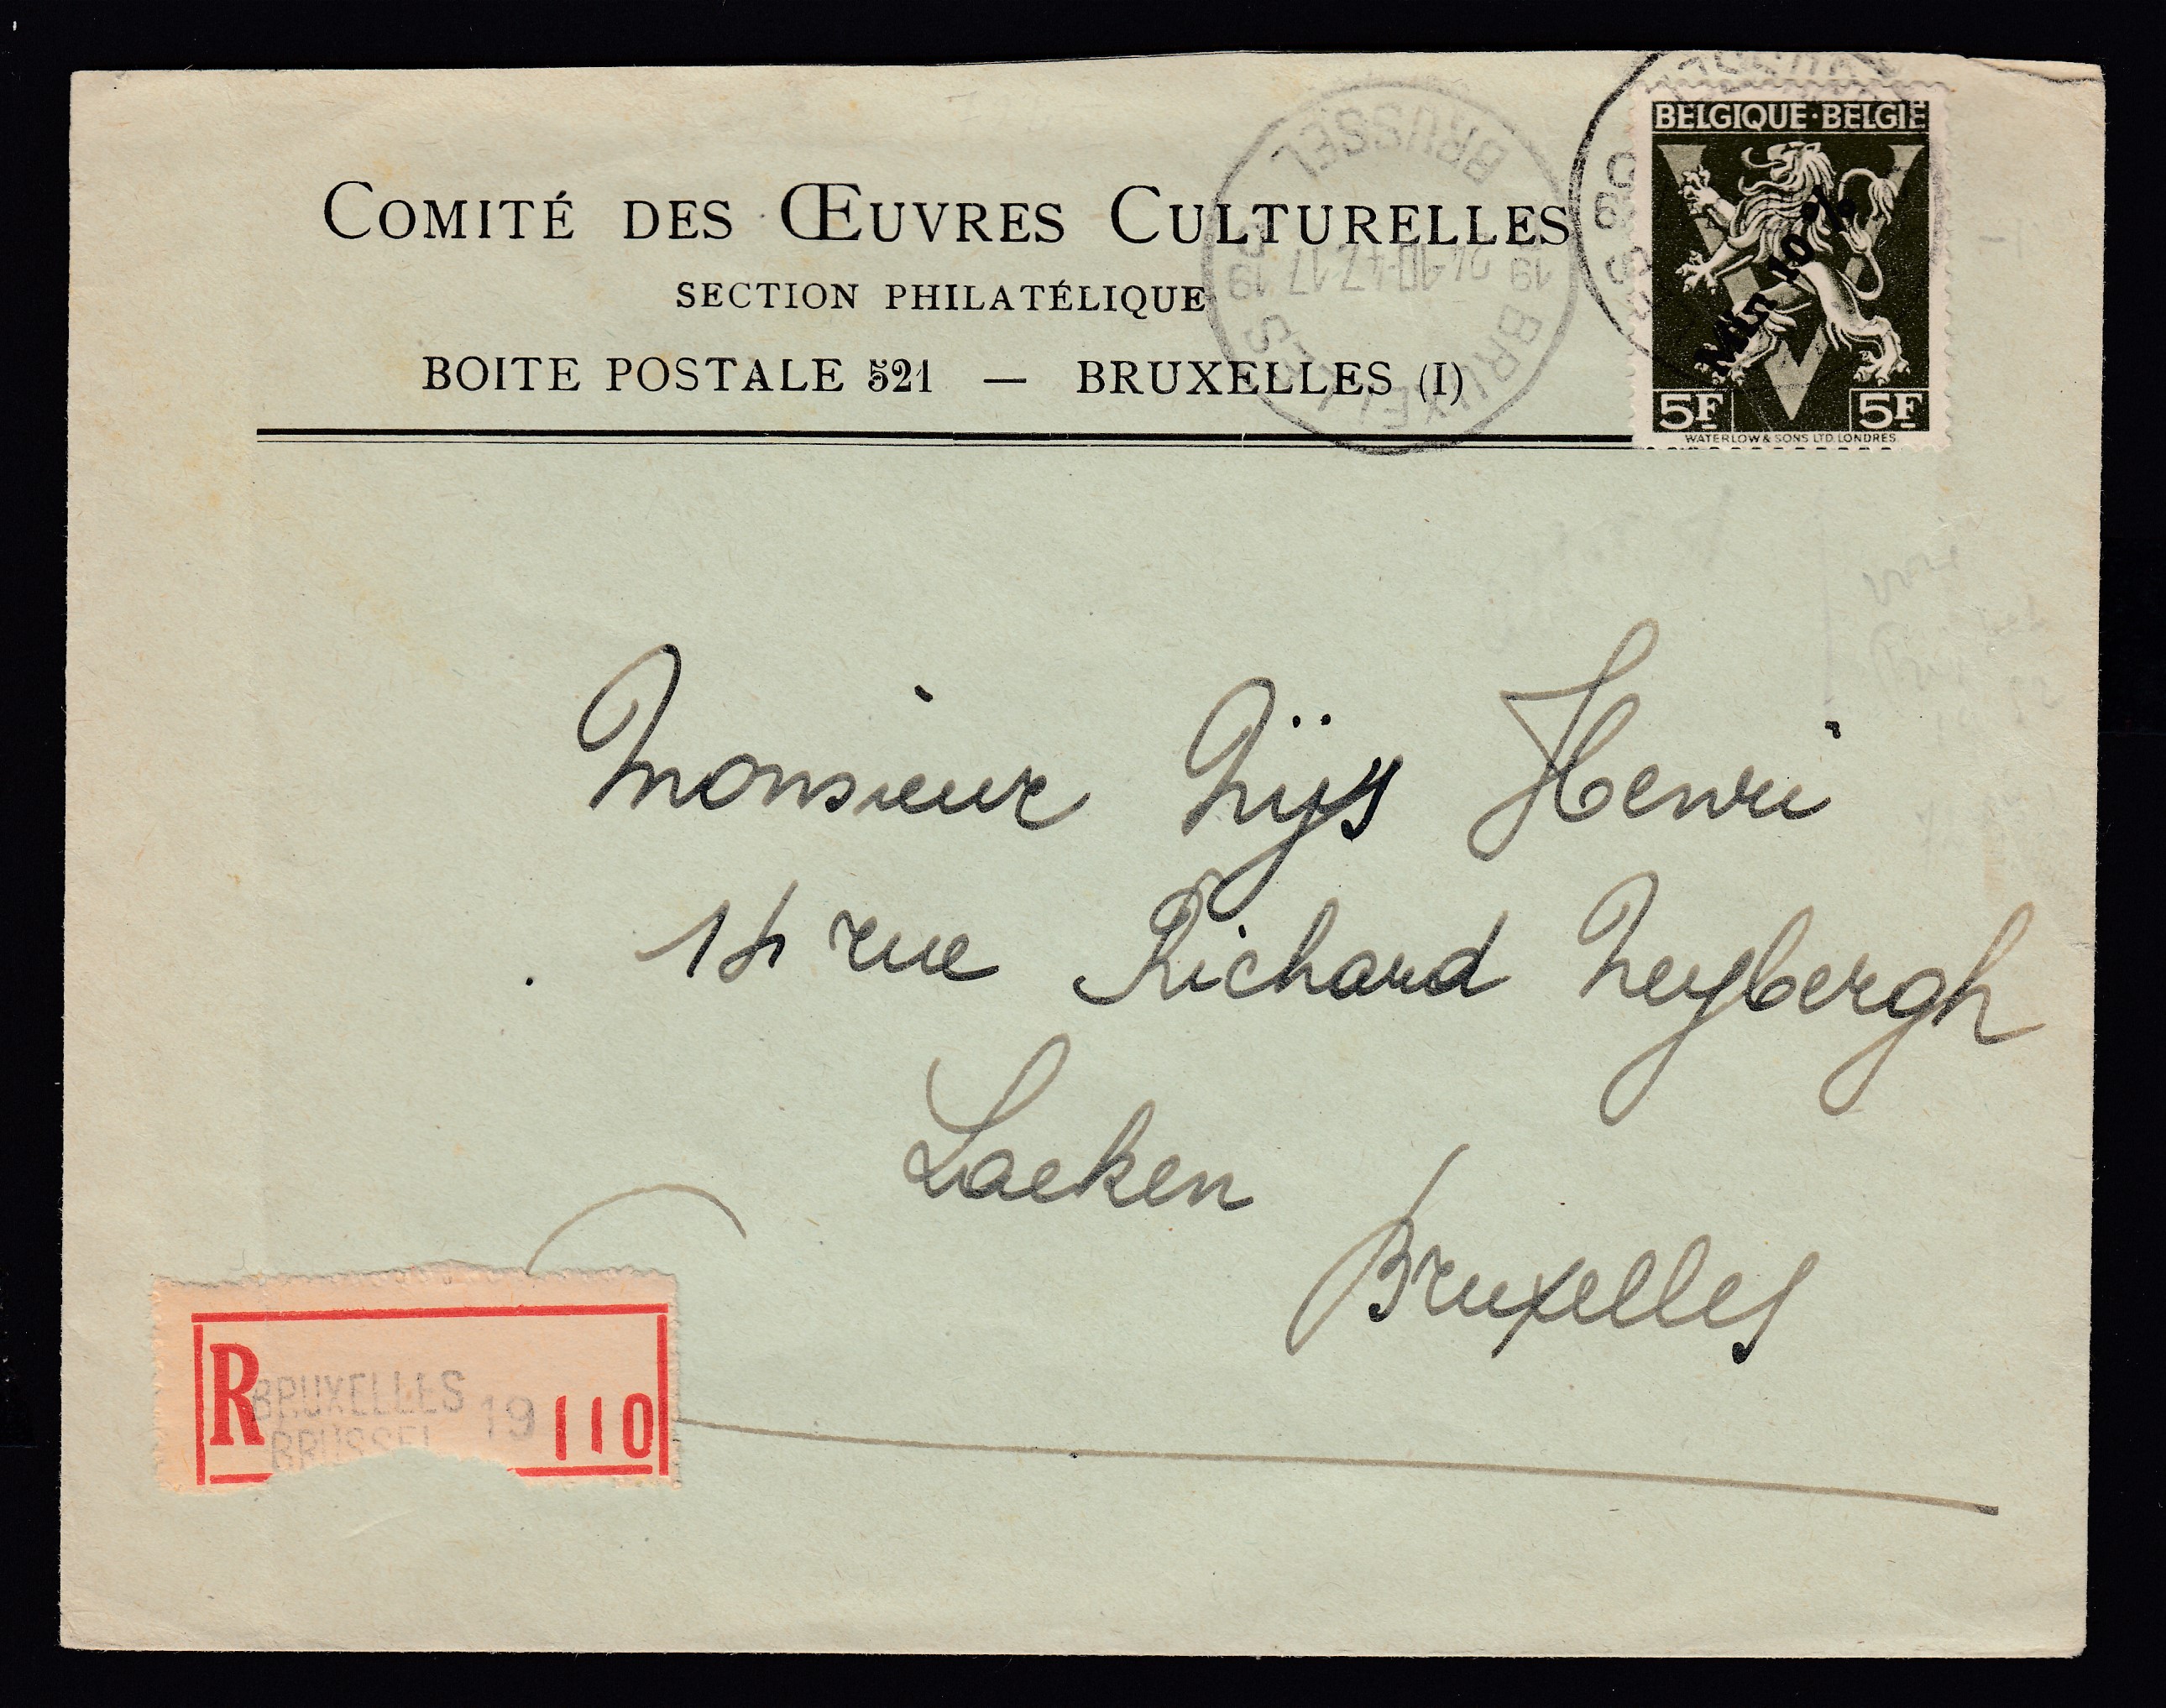 COMITÉ DES ŒUVRES CULTURELLES
SECTION PHILATÉLIQUE
BOITE POSTALE 521 — BRUXELLES (I)
BRUSSEL
19 24-10-47.17 19
BRUXELLES
BELGIQUE·BELGIE
-10%
5F 5F
WATERLOW & SONS LTD. LONDRES.
Monsieur Nijs Henri
14 rue Richard Neybergh
Laeken
Bruxelles
R BRUXELLES 19 110
BRUSSEL